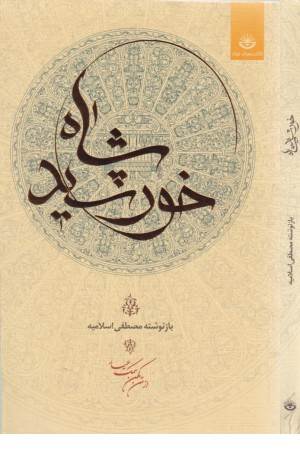 خورشید شاه
بازنوشته مصطفی اسلامیه
خورشید شاه
بازنوشته مصطفی اسلامیه